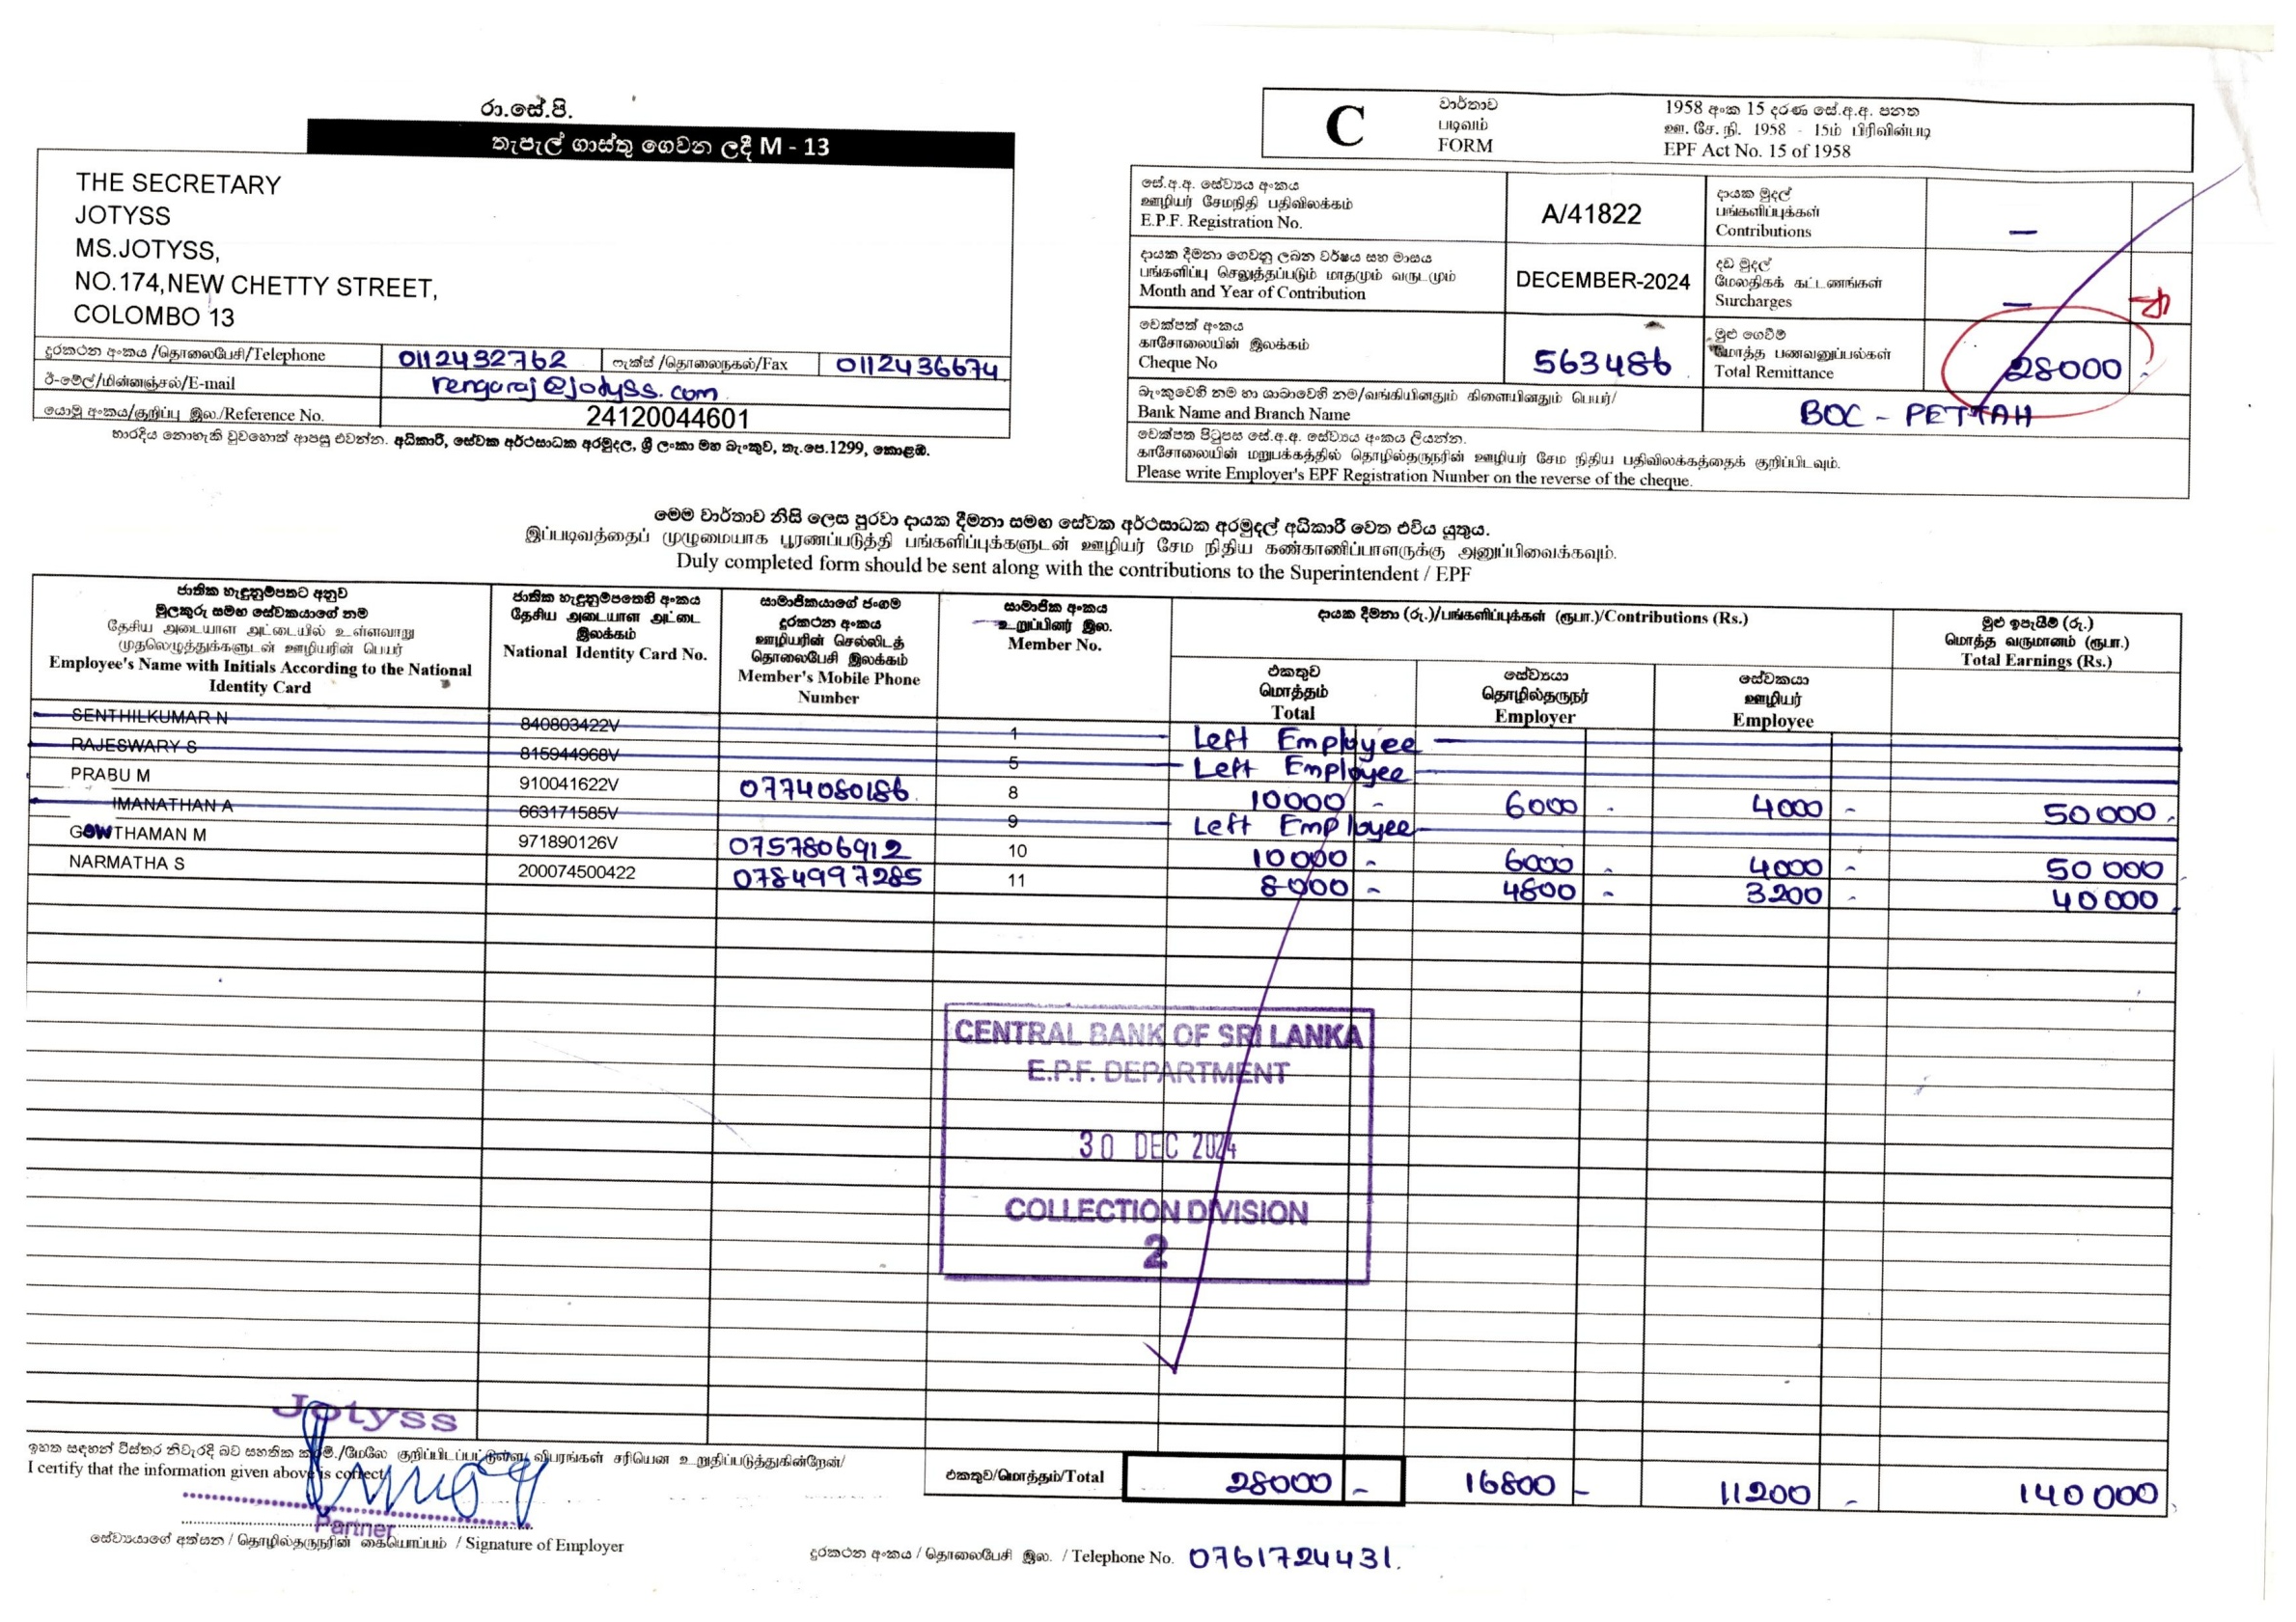 රා.සේ.පි.
තැපැල් ගාස්තු ගෙවන ලදී M - 13
THE SECRETARY
JOTYSS
MS.JOTYSS,
NO.174,NEW CHETTY STREET,
COLOMBO 13
දුරකථන අංකය /தொலைபேசி/Telephone 0112432762 ෆැක්ස් /தொலைநகல்/Fax 0112436674
ඊ-මේල්/மின்னஞ்சல்/E-mail rengaraj@jotyss.com
යොමු අංකය/குறிப்பு இல./Reference No. 24120044601
භාරදිය නොහැකි වුවහොත් ආපසු එවන්න. අධිකාරී, සේවක අර්ථසාධක අරමුදල, ශ්‍රී ලංකා මහ බැංකුව, තැ.පෙ.1299, කොළඹ.
C වාර්තාව 1958 අංක 15 දරණ සේ.අ.අ. පනත
படிவம் ஊ. சே. நி. 1958 - 15ம் பிரிவின்படி
FORM EPF Act No. 15 of 1958
සේ.අ.අ. සේව්‍යය අංකය
ஊழியர் சேமநிதி பதிவிலக்கம்
E.P.F. Registration No. A/41822
දායක මුදල්
பங்களிப்புக்கள்
Contributions –
දායක දීමනා ගෙවනු ලබන වර්ෂය සහ මාසය
பங்களிப்பு செலுத்தப்படும் மாதமும் வருடமும்
Month and Year of Contribution DECEMBER-2024
දඩ මුදල්
மேலதிகக் கட்டணங்கள்
Surcharges –
චෙක්පත් අංකය
காசோலையின் இலக்கம்
Cheque No 563486
මුළු ගෙවීම්
மொத்த பணவனுப்பல்கள்
Total Remittance 28000 -
බැංකුවෙහි නම හා ශාඛාවෙහි නම/வங்கியினதும் கிளையினதும் பெயர்/
Bank Name and Branch Name BOC - PETTAH
චෙක්පත පිටුපස සේ.අ.අ. සේව්‍යය අංකය ලියන්න.
காசோலையின் மறுபக்கத்தில் தொழில்தருநரின் ஊழியர் சேம நிதிய பதிவிலக்கத்தைக் குறிப்பிடவும்.
Please write Employer's EPF Registration Number on the reverse of the cheque.
මෙම වාර්තාව නිසි ලෙස පුරවා දායක දීමනා සමඟ සේවක අර්ථසාධක අරමුදල් අධිකාරී වෙත එවිය යුතුය.
இப்படிவத்தைப் முழுமையாக பூரணப்படுத்தி பங்களிப்புக்களுடன் ஊழியர் சேம நிதிய கண்காணிப்பாளருக்கு அனுப்பிவைக்கவும்.
Duly completed form should be sent along with the contributions to the Superintendent / EPF
ජාතික හැඳුනුම්පතට අනුව
මුලකුරු සමඟ සේවකයාගේ නම
தேசிய அடையாள அட்டையில் உள்ளவாறு
முதலெழுத்துக்களுடன் ஊழியரின் பெயர்
Employee's Name with Initials According to the National
Identity Card
ජාතික හැඳුනුම්පතෙහි අංකය
தேசிய அடையாள அட்டை
இலக்கம்
National Identity Card No.
සාමාජිකයාගේ ජංගම
දුරකථන අංකය
ஊழியரின் செல்லிடத்
தொலைபேசி இலக்கம்
Member's Mobile Phone
Number
සාමාජික අංකය
உறுப்பினர் இல.
Member No.
දායක දීමනා (රු.)/பங்களிப்புக்கள் (ரூபா.)/Contributions (Rs.)
එකතුව
மொத்தம்
Total
සේව්‍යයා
தொழில்தருநர்
Employer
සේවකයා
ஊழியர்
Employee
මුළු ඉපැයීම් (රු.)
மொத்த வருமானம் (ரூபா.)
Total Earnings (Rs.)
SENTHILKUMAR N 840803422V 1 Left Employee
RAJESWARY S 815944968V 5 Left Employee
PRABU M 910041622V 0774080186 8 10000 - 6000 - 4000 - 50000 -
IMANATHAN A 663171585V 9 Left Employee
GOWTHAMAN M 971890126V 0757806912 10 10000 - 6000 - 4000 - 50000 -
NARMATHA S 200074500422 0784997285 11 8000 - 4800 - 3200 - 40000 -
CENTRAL BANK OF SRI LANKA
E.P.F. DEPARTMENT
30 DEC 2024
COLLECTION DIVISION
2
Jotyss
ඉහත සඳහන් විස්තර නිවැරදි බව සහතික කරමි./மேலே குறிப்பிடப்பட்டுள்ள விபரங்கள் சரியென உறுதிப்படுத்துகின்றேன்/
I certify that the information given above is correct
එකතුව/மொத்தம்/Total 28000 - 16800 - 11200 - 140000
Partner
සේව්‍යයාගේ අත්සන / தொழில்தருநரின் கையொப்பம் / Signature of Employer
දුරකථන අංකය / தொலைபேசி இல. / Telephone No. 0761724431.